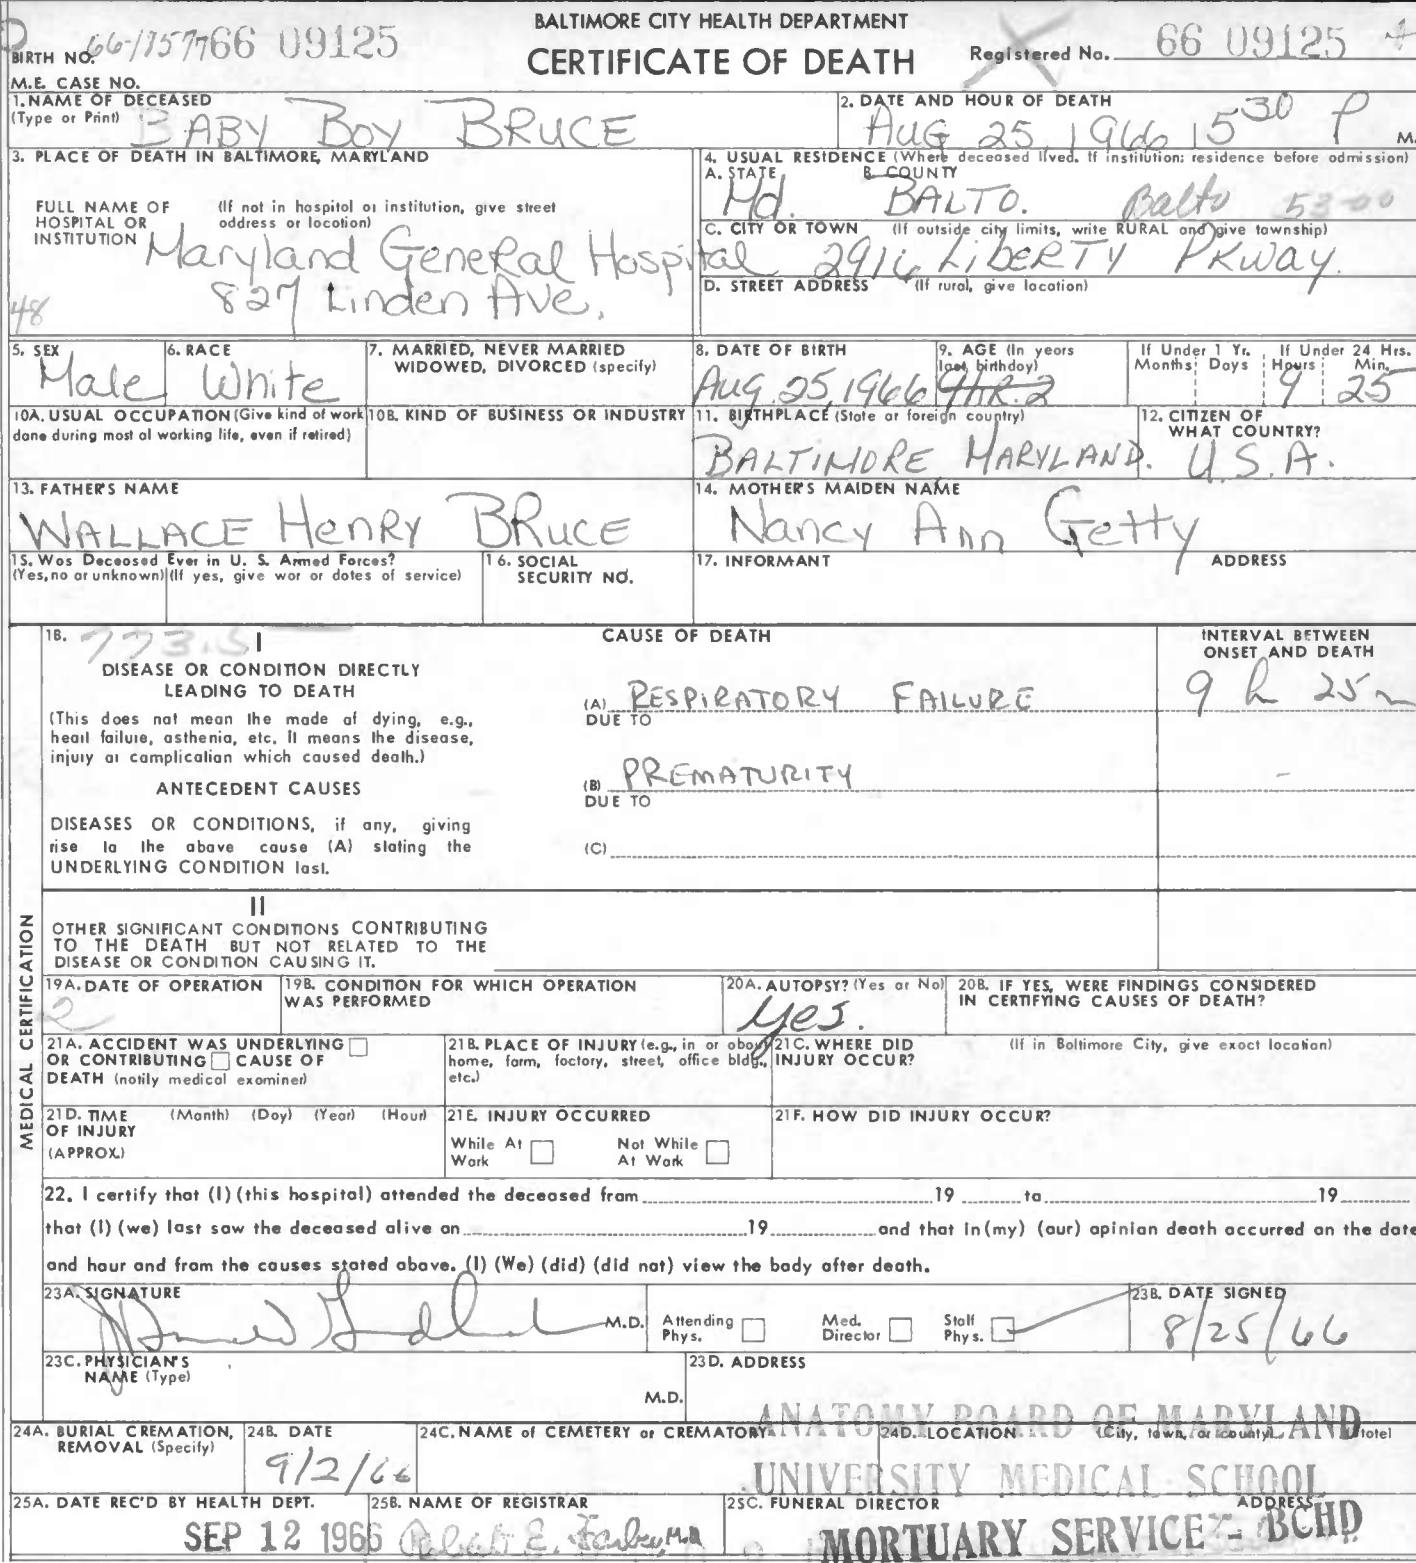 BALTIMORE CITY HEALTH DEPARTMENT
CERTIFICATE OF DEATH
BIRTH NO. 66 09125
Registered No. 66 09125
M.E. CASE NO.
1. NAME OF DECEASED
(Type or Print) BABY BOY BRUCE
2. DATE AND HOUR OF DEATH
AUG 25, 1966 5 30 P M.
3. PLACE OF DEATH IN BALTIMORE, MARYLAND
FULL NAME OF HOSPITAL OR INSTITUTION
(If not in hospital or institution, give street address or location)
Maryland General Hospital
827 Linden Ave.
48
4. USUAL RESIDENCE (Where deceased lived. If institution: residence before admission)
A. STATE B. COUNTY
Md. BALTO. Balto 53-00
C. CITY OR TOWN (If outside city limits, write RURAL and give township)
2916 LIBERTY PKWAY.
D. STREET ADDRESS (If rural, give location)
5. SEX
Male
6. RACE
White
7. MARRIED, NEVER MARRIED
WIDOWED, DIVORCED (specify)
8. DATE OF BIRTH
Aug. 25, 1966
9. AGE (In years
last birthday)
If Under 1 Yr.
Months Days
If Under 24 Hrs.
Hours Min.
9 25
10A. USUAL OCCUPATION (Give kind of work
done during most of working life, even if retired)
10B. KIND OF BUSINESS OR INDUSTRY
11. BIRTHPLACE (State or foreign country)
BALTIMORE MARYLAND.
12. CITIZEN OF
WHAT COUNTRY?
U.S.A.
13. FATHER'S NAME
WALLACE HENRY BRUCE
14. MOTHER'S MAIDEN NAME
Nancy Ann Getty
15. Was Deceased Ever in U. S. Armed Forces?
(Yes, no or unknown) (If yes, give war or dates of service)
16. SOCIAL
SECURITY NO.
17. INFORMANT ADDRESS
MEDICAL CERTIFICATION
18. 773.5 I
CAUSE OF DEATH
INTERVAL BETWEEN
ONSET AND DEATH
DISEASE OR CONDITION DIRECTLY
LEADING TO DEATH
(This does not mean the mode of dying, e.g.,
heart failure, asthenia, etc. It means the disease,
injury or complication which caused death.)
(A) RESPIRATORY FAILURE 9 h 25 m
DUE TO
ANTECEDENT CAUSES
(B) PREMATURITY -
DUE TO
DISEASES OR CONDITIONS, if any, giving
rise to the above cause (A) stating the
UNDERLYING CONDITION last.
(C)
II
OTHER SIGNIFICANT CONDITIONS CONTRIBUTING
TO THE DEATH BUT NOT RELATED TO THE
DISEASE OR CONDITION CAUSING IT.
19A. DATE OF OPERATION
2
19B. CONDITION FOR WHICH OPERATION
WAS PERFORMED
20A. AUTOPSY? (Yes or No)
yes.
20B. IF YES, WERE FINDINGS CONSIDERED
IN CERTIFYING CAUSES OF DEATH?
21A. ACCIDENT WAS UNDERLYING
OR CONTRIBUTING CAUSE OF
DEATH (notify medical examiner)
21B. PLACE OF INJURY (e.g., in or about
home, farm, factory, street, office bldg.,
etc.)
21C. WHERE DID
INJURY OCCUR?
(If in Baltimore City, give exact location)
21D. TIME (Month) (Day) (Year) (Hour)
OF INJURY
(APPROX.)
21E. INJURY OCCURRED
While At Work Not While At Work
21F. HOW DID INJURY OCCUR?
22. I certify that (I) (this hospital) attended the deceased from 19 to 19
that (I) (we) last saw the deceased alive on 19 and that in (my) (our) opinion death occurred on the date
and hour and from the causes stated above. (I) (We) (did) (did not) view the body after death.
23A. SIGNATURE
M.D.
Attending Phys. Med. Director Staff Phys.
23B. DATE SIGNED
8/25/66
23C. PHYSICIAN'S
NAME (Type)
M.D.
23D. ADDRESS
ANATOMY BOARD OF MARYLAND
24A. BURIAL CREMATION,
REMOVAL (Specify)
24B. DATE
9/2/66
24C. NAME of CEMETERY or CREMATORY
24D. LOCATION (City, town, or county) (State)
UNIVERSITY MEDICAL SCHOOL
25A. DATE REC'D BY HEALTH DEPT.
SEP 12 1966
25B. NAME OF REGISTRAR
Robert E. Farber, M.D.
25C. FUNERAL DIRECTOR ADDRESS
MORTUARY SERVICE - BCHD